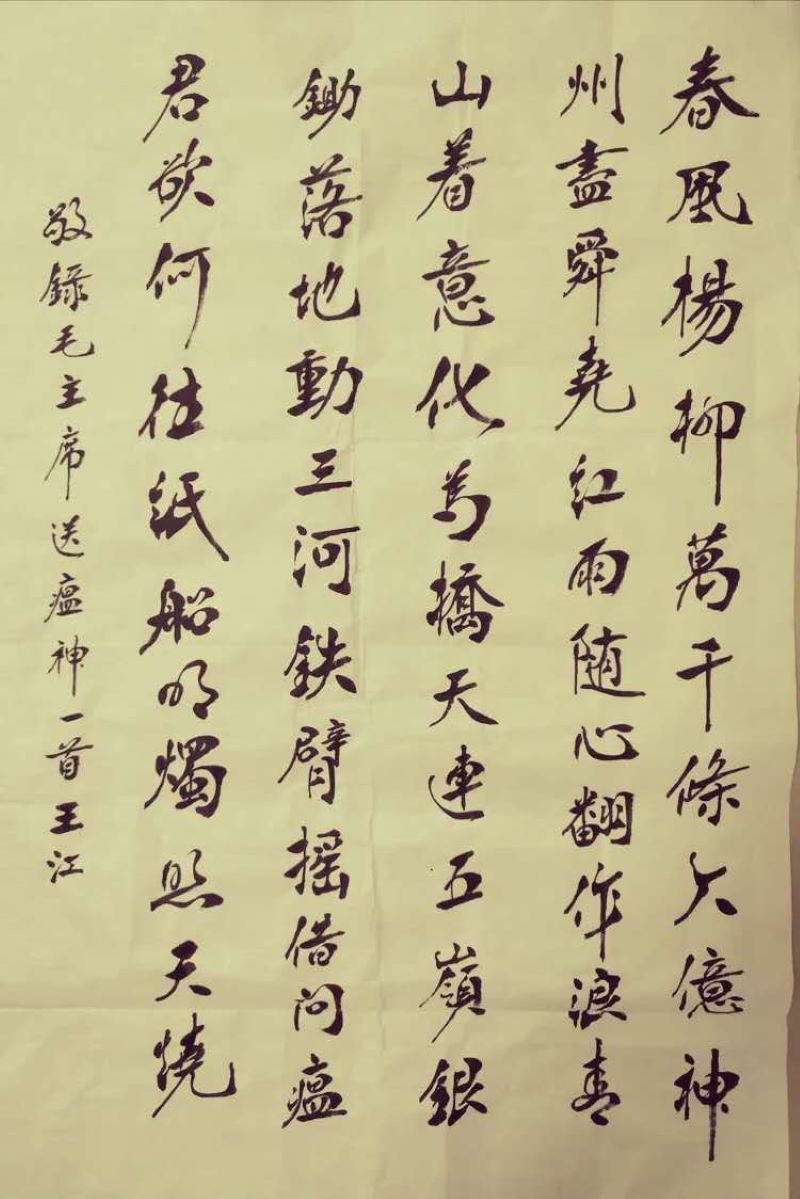 春風楊柳萬千條六億神
州盡舜堯紅雨随心翻作浪青
山着意化為橋天連五嶺銀
鋤落地動三河鉄臂摇借问瘟
君欲何往紙船明燭照天燒
敬録毛主席送瘟神一首王江